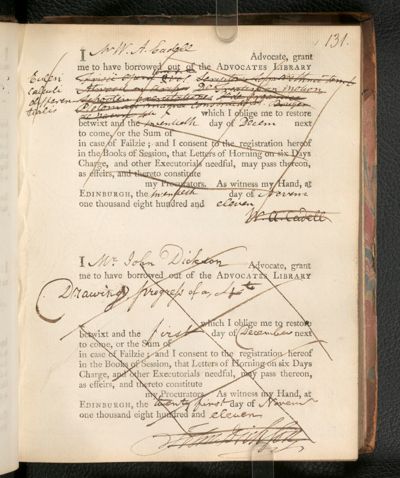 131.
I Mr W. A. Cadell Advocate, grant
me to have borrowed out of the ADVOCATES LIBRARY
Euleri
calculi
differen
tialis
which I oblige me to restore
betwixt and the twentieth day of Decem next
to come, or the Sum of
in case of Failzie; and I consent to the registration hereof
in the Books of Session, that Letters of Horning on six Days
Charge, and other Executorials needful, may pass thereon,
as effeirs, and thereto constitute
my Procurators. As witness my Hand, at
EDINBURGH, the twentieth day of Novem
one thousand eight hundred and eleven
W. A. Cadell
I Mr John Dickson Advocate, grant
me to have borrowed out of the ADVOCATES LIBRARY
Drawing progress of a, 4to
which I oblige me to restore
betwixt and the first day of December next
to come, or the Sum of
in case of Failzie; and I consent to the registration hereof
in the Books of Session, that Letters of Horning on six Days
Charge, and other Executorials needful, may pass thereon,
as effeirs, and thereto constitute
my Procurators. As witness my Hand, at
EDINBURGH, the twenty first day of Novem
one thousand eight hundred and eleven